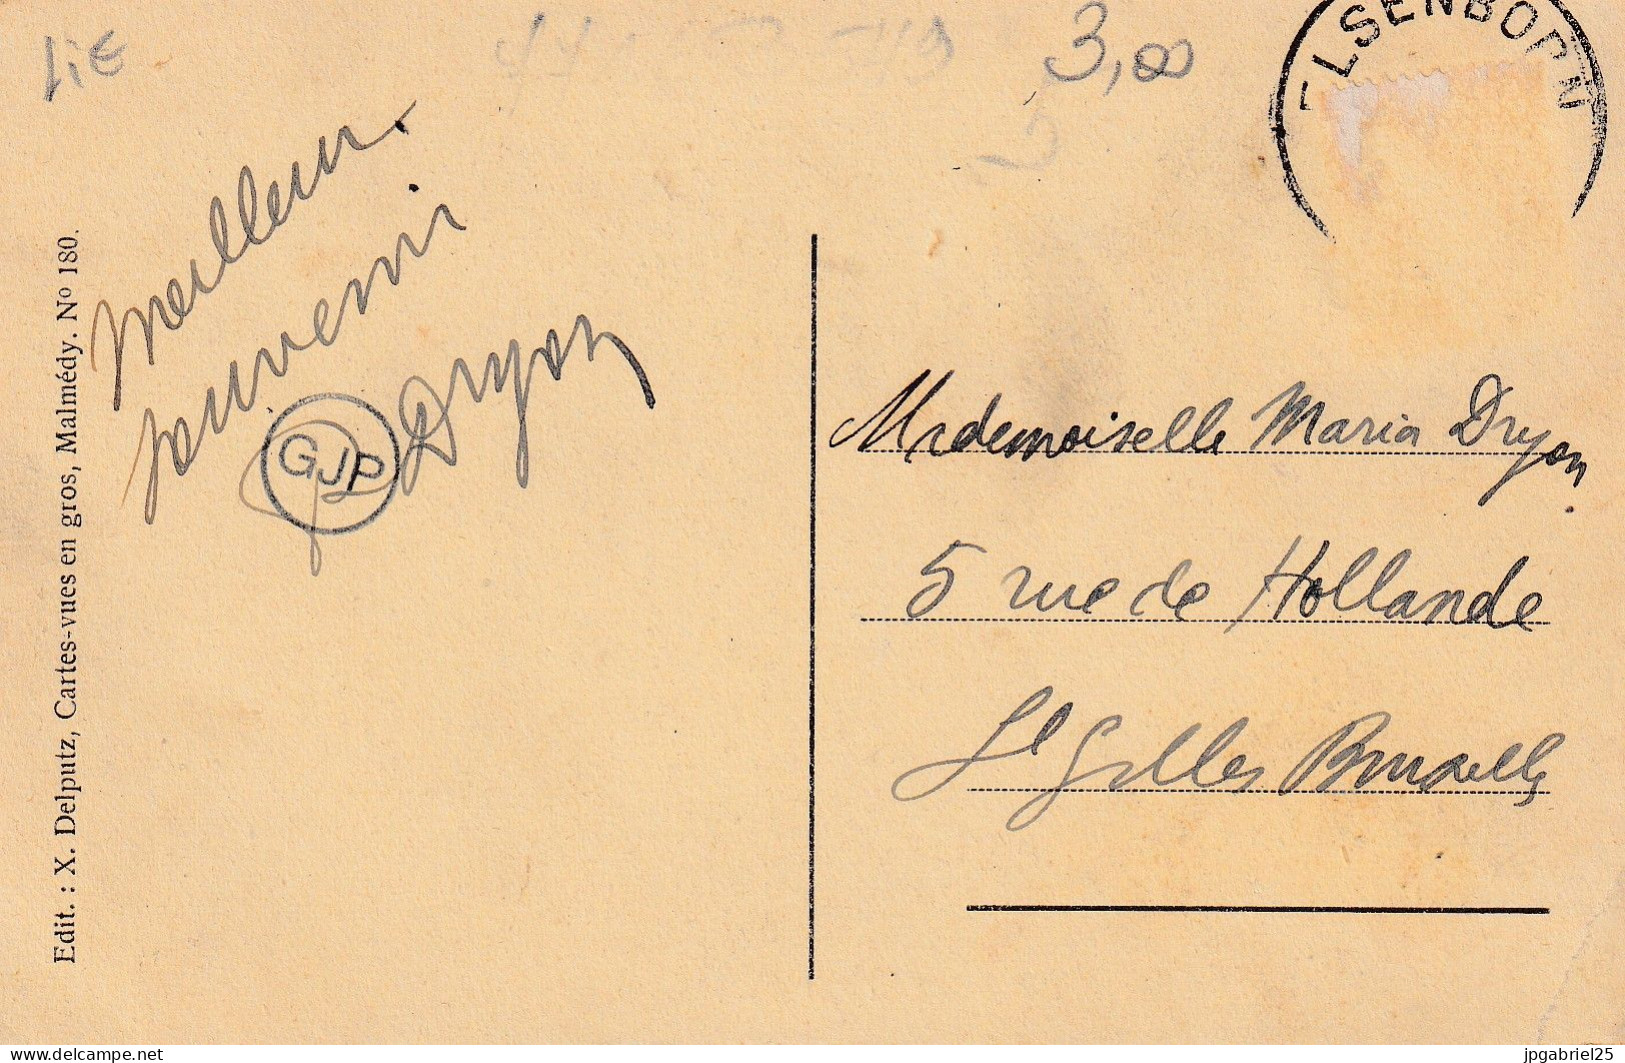 LiE
3,00
ELSENBORN
Meilleur
souvenir
Dryon
GJP
Edit. : X. Delputz, Cartes-vues en gros, Malmédy. Nº 180.
Mademoiselle Maria Dryon
5 rue de Hollande
St Gilles Bruxelles
delcampe.net
jpgabriel25